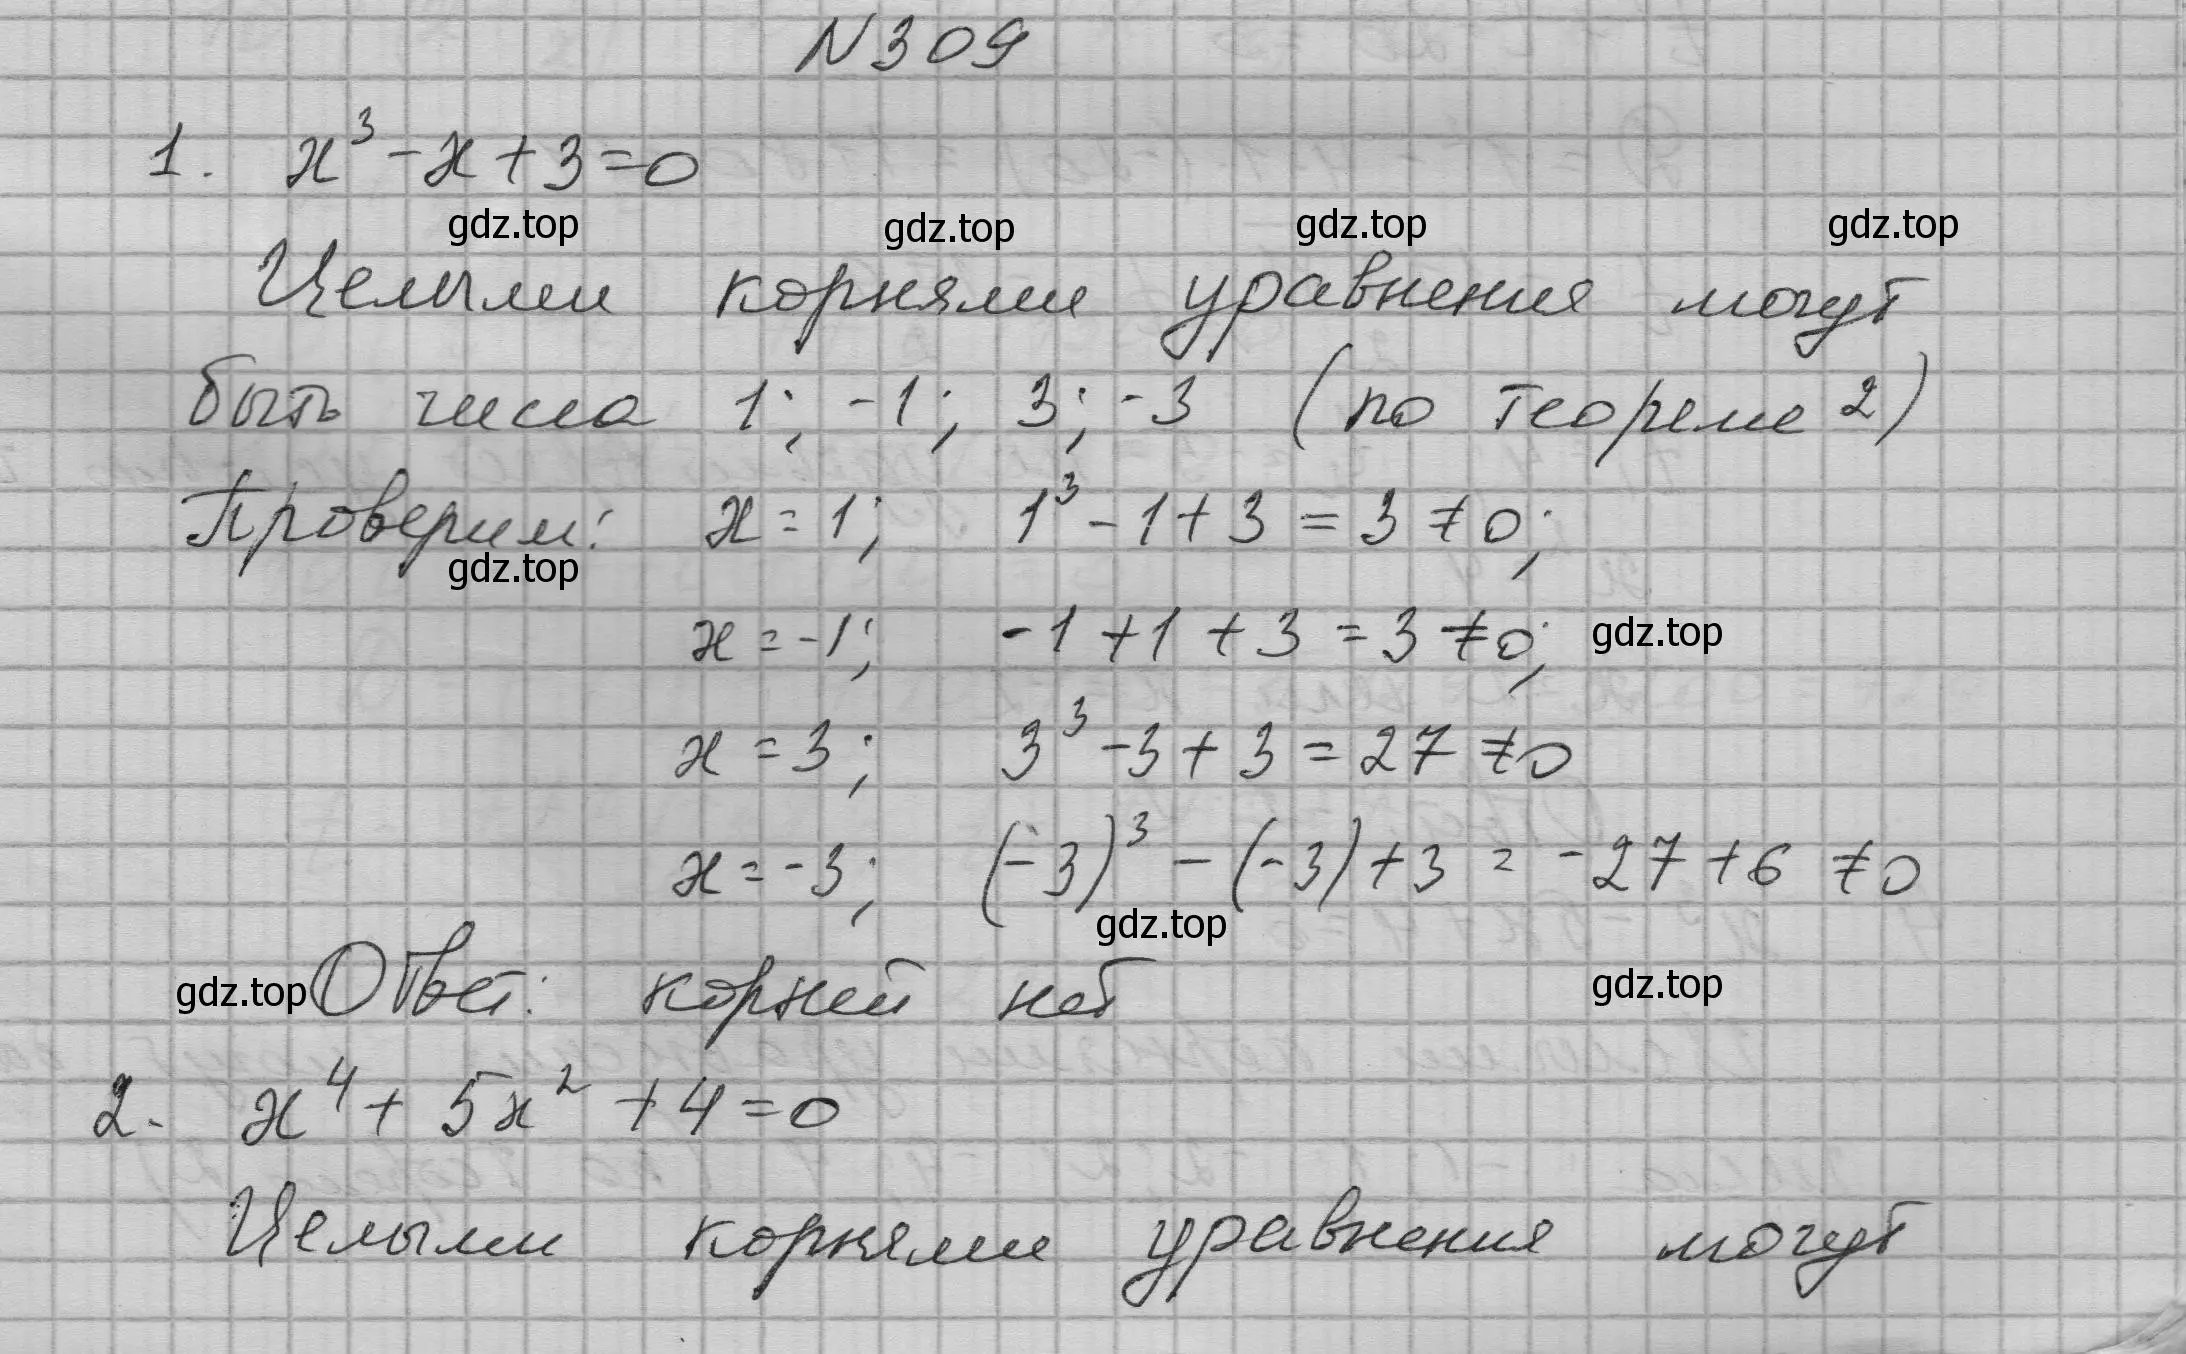 N 309
1. x³ - x + 3 = 0
gdz.top gdz.top gdz.top gdz.top
Целыми корнями уравнения могут
быть числа 1; -1; 3; -3 (по теореме 2)
Проверим: x = 1; 1³ - 1 + 3 = 3 ≠ 0;
gdz.top
x = -1; -1 + 1 + 3 = 3 ≠ 0; gdz.top
x = 3; 3³ - 3 + 3 = 27 ≠ 0
x = -3; (-3)³ - (-3) + 3 = -27 + 6 ≠ 0
gdz.top
gdz.top Ответ: корней нет gdz.top
2. x⁴ + 5x² + 4 = 0
Целыми корнями уравнения могут